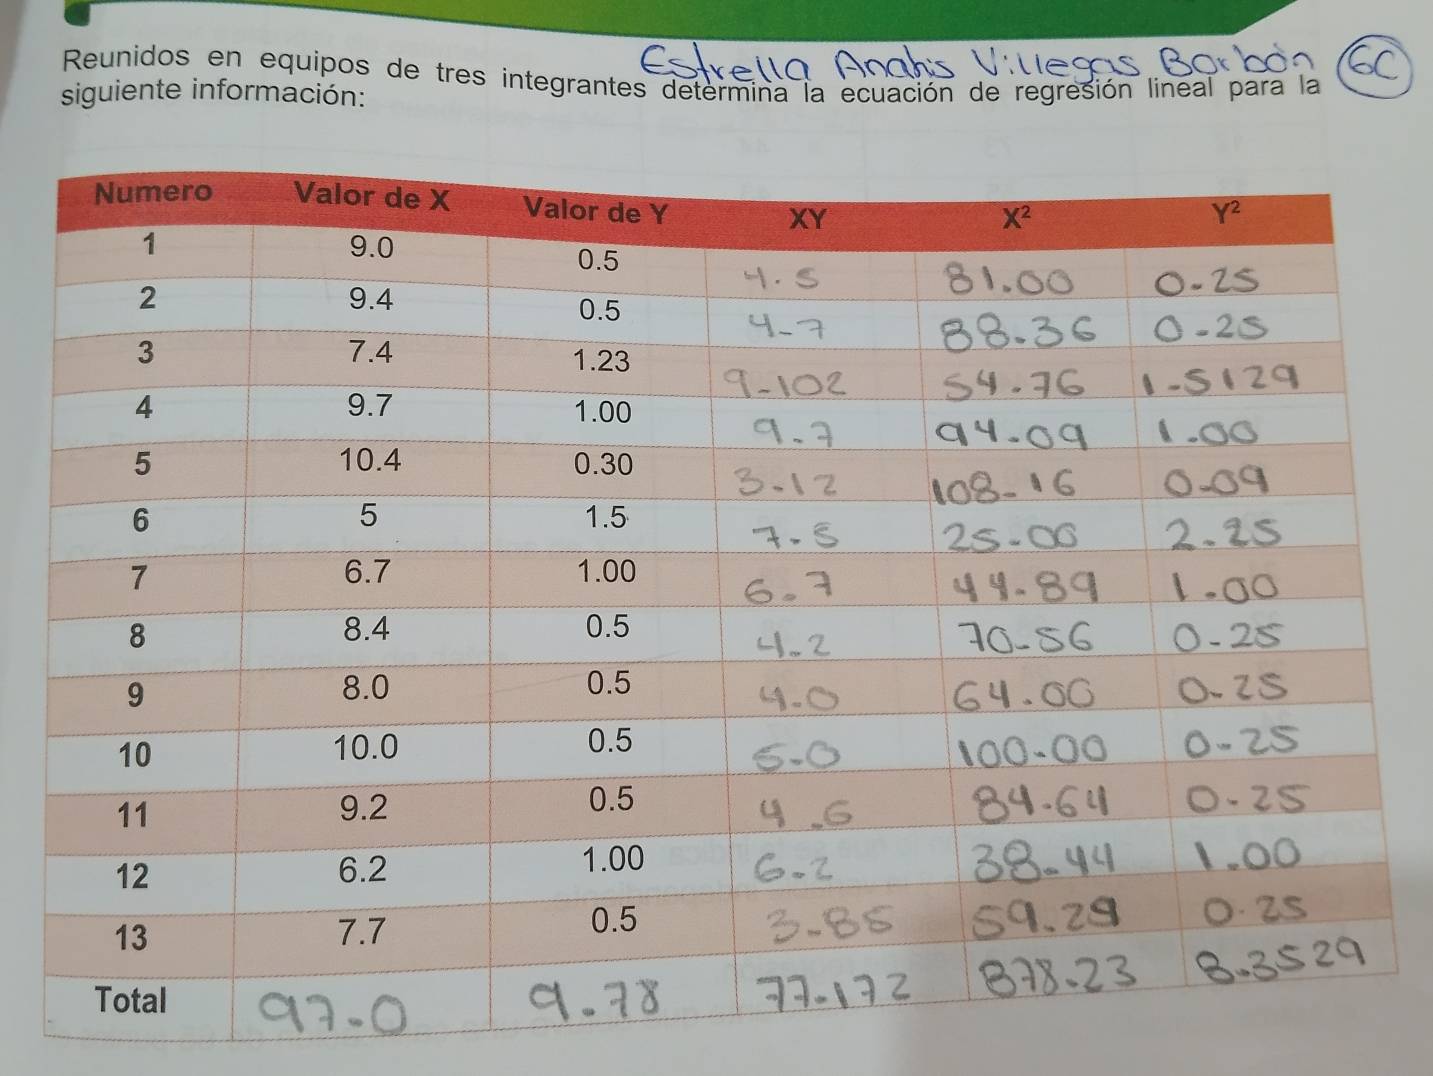 Estrella Anahis Villegas Borbón 6C
Reunidos en equipos de tres integrantes determina la ecuación de regresión lineal para la
siguiente información:
Numero Valor de X Valor de Y XY X² Y²
1 9.0 0.5 4.5 81.00 0.25
2 9.4 0.5 4.7 88.36 0.25
3 7.4 1.23 9.102 54.76 1.5129
4 9.7 1.00 9.7 94.09 1.00
5 10.4 0.30 3.12 108.16 0.09
6 5 1.5 7.5 25.00 2.25
7 6.7 1.00 6.7 44.89 1.00
8 8.4 0.5 4.2 70.56 0.25
9 8.0 0.5 4.0 64.00 0.25
10 10.0 0.5 5.0 100.00 0.25
11 9.2 0.5 4.6 84.64 0.25
12 6.2 1.00 6.2 38.44 1.00
13 7.7 0.5 3.85 59.29 0.25
Total 97.0 9.78 77.172 878.23 8.3529